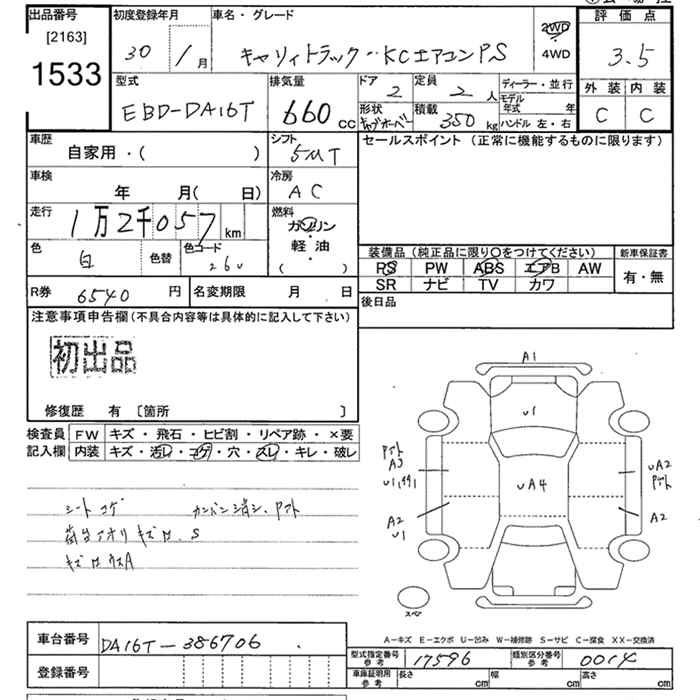 出品番号
[2163]
1533
初度登録年月
30 / 1月
車名・グレード
キャリィトラック KCエアコンPS
2WD
4WD
評価点
3.5
外装 内装
C C
型式
EBD-DA16T
排気量
660 cc
ドア
2
定員
2人
形状
キャブオーバー
積載
350 kg
ディーラー・並行
モデル年式 年
ハンドル 左・右
車歴
自家用・( )
シフト
5MT
セールスポイント (正常に機能するものに限ります)
車検
年 月( 日)
冷房
AC
走行
1万2千057 km
燃料
ガソリン
軽・油
( )
色
白
色替
色コード
26U
装備品 (純正品に限り〇をつけてください)
PS PW ABS エアB AW
SR ナビ TV カワ
新車保証書
有・無
R券 6540 円
名変期限 月 日
後日品
注意事項申告欄(不具合内容等は具体的に記入して下さい)
初出品
修復歴 有 〔箇所 〕
検査員記入欄
FW キズ・飛石・ヒビ割・リペア跡・×要
内装 キズ・汚レ・コゲ・穴・スレ・キレ・破レ
シートコゲ カンバン消シ、Pアト
荷台アオリキズ S
A1
U1
UA4
Pアト
A3
A2
U1
UA2
Pアト
A2
スペア
A−キズ E−エクボ U−凹み W−補修跡 S−サビ C−腐食 XX−交換済
車台番号
DA16T-386706
登録番号
型式指定番号 参考
17596
類別区分番号 参考
0014
車庫証明用 参考
長さ cm
幅 cm
高さ cm